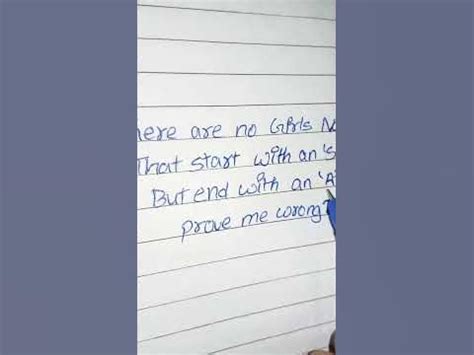 here are no Girls N
That start with an 'S
But end with an 'A'
prove me wrong?